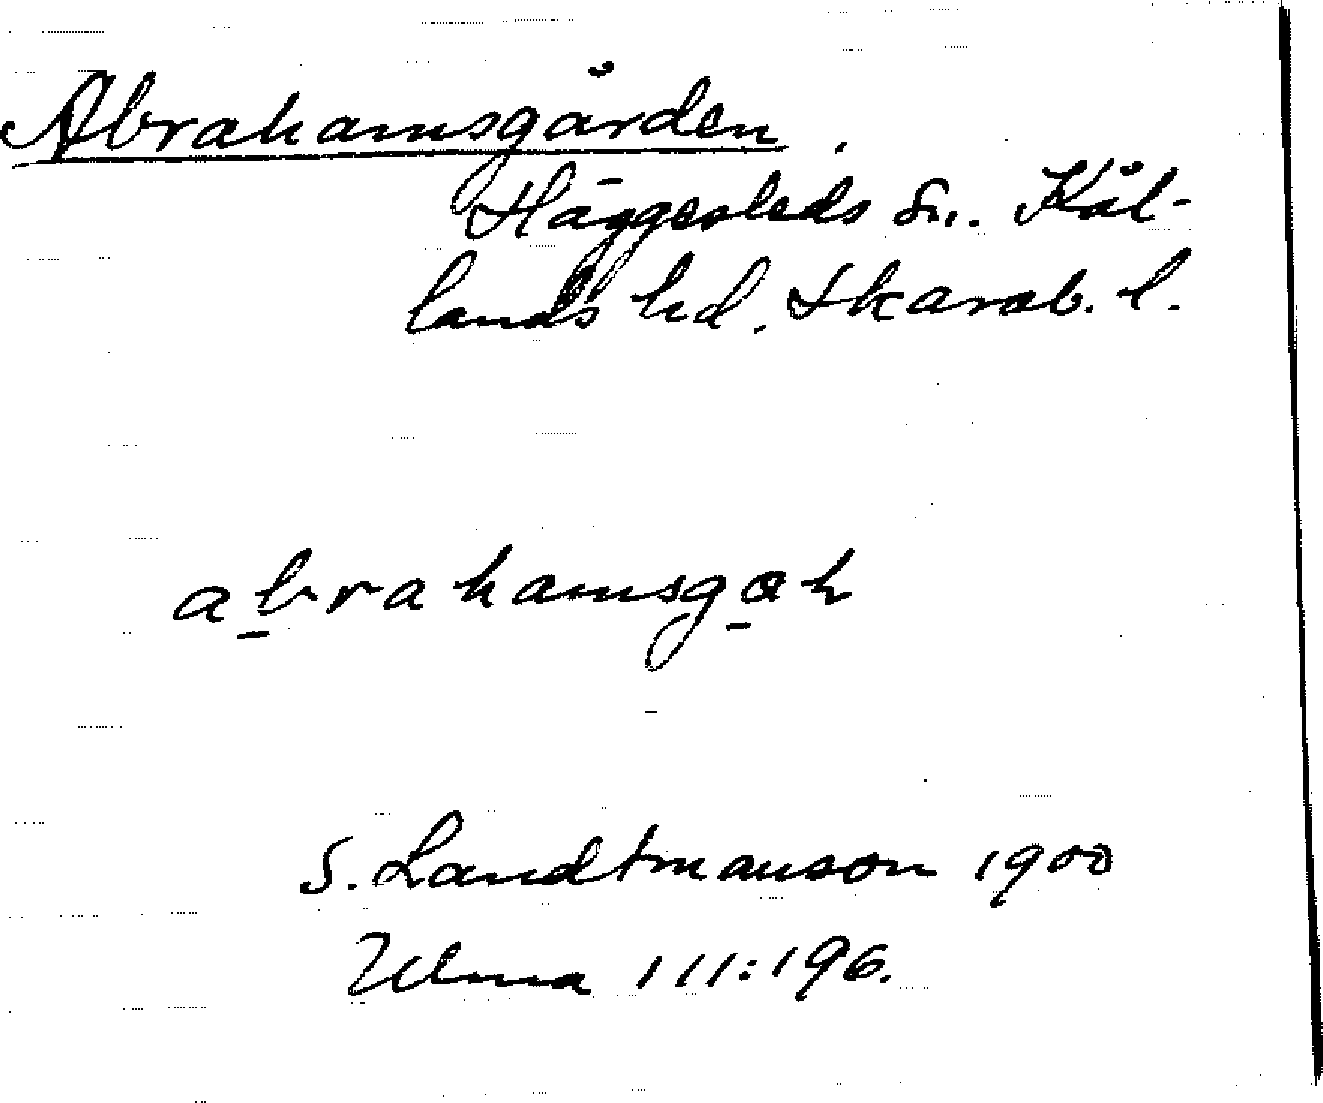 Abrahamsgården.
Häggesleds sn. Kål-
lands hd. Skarab. l.
abrahamsgah
S. Landtmanson 1900
Ulma 111:196.